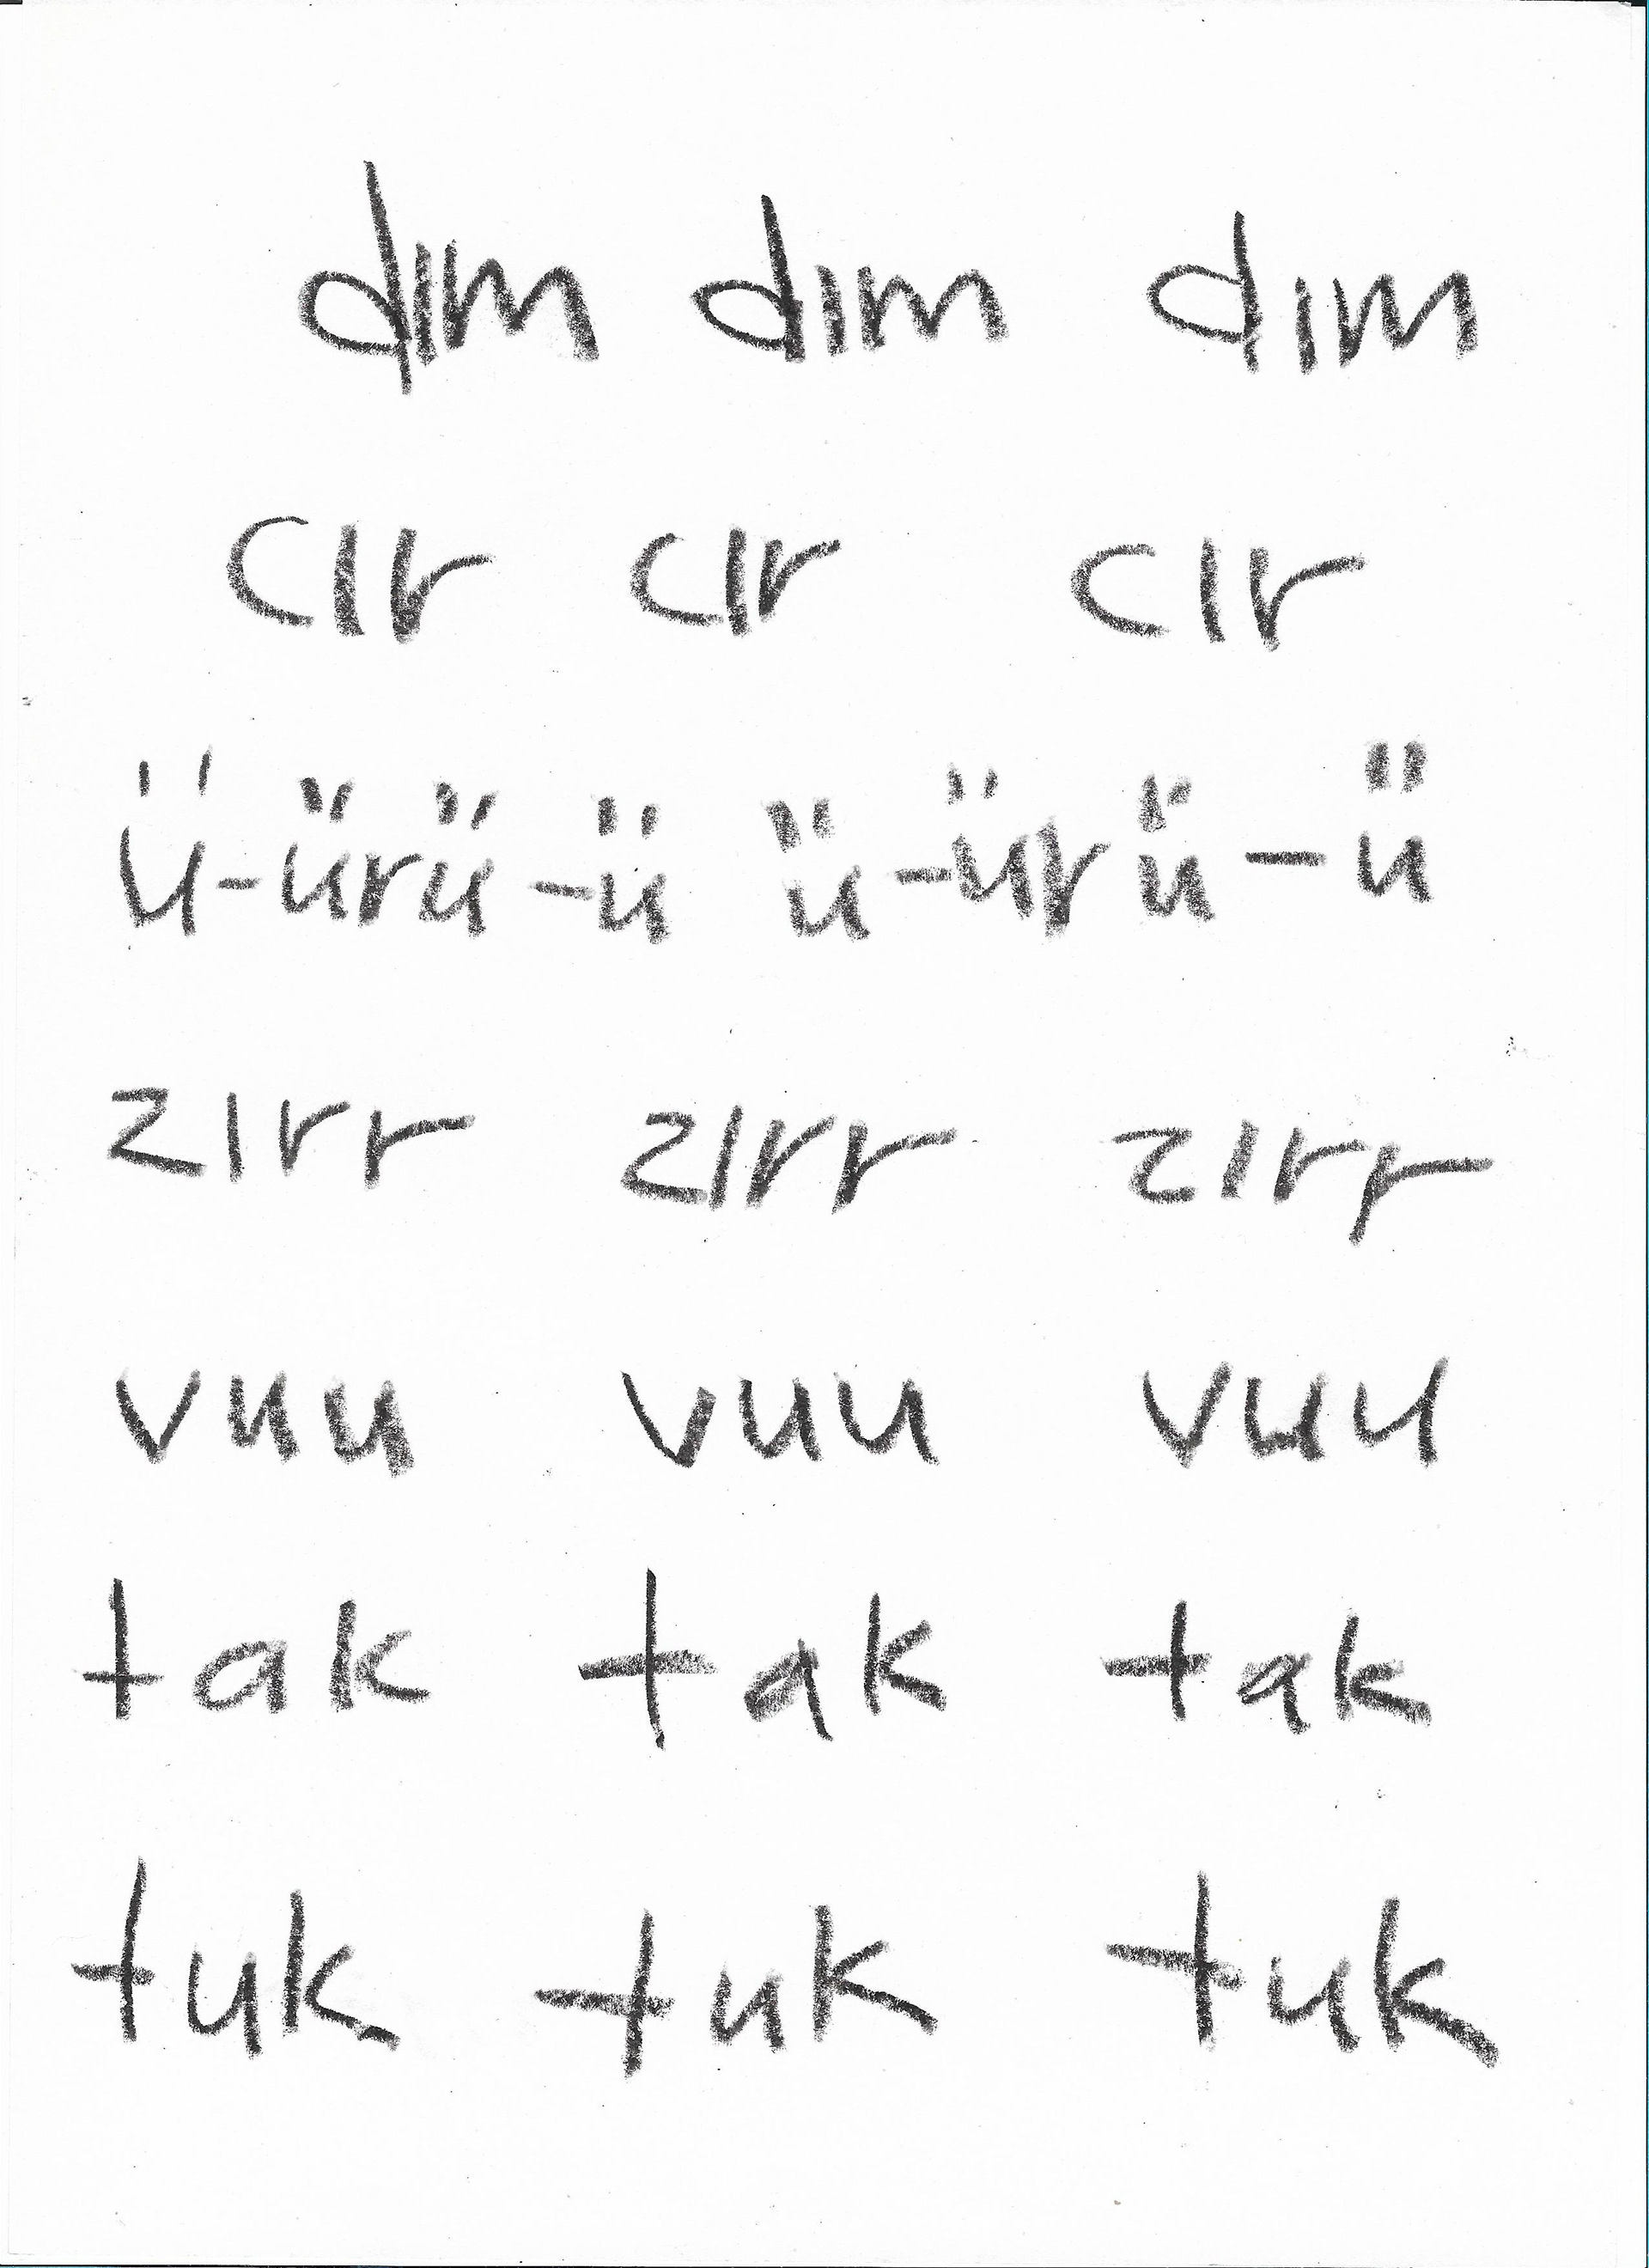 dım dım dım
cır cır cır
ü-ürü-ü ü-ürü-ü
zırr zırr zırr
vuu vuu vuu
tak tak tak
tuk tuk tuk